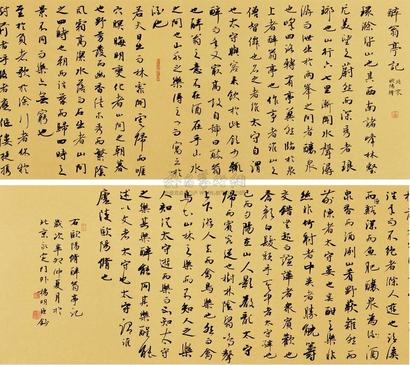 醉翁亭記 北宋 歐陽修
環滁皆山也其西南諸峰林壑
尤美望之蔚然而深秀者琅
琊也山行六七里漸聞水聲潺
潺而瀉出于兩峯之間者釀泉
也峰回路轉有亭翼然臨於泉
上者醉翁亭也作亭者誰山之
僧智僊也名之者誰太守自謂
也太守與客來飲於此飲少輒
醉而年又最高故自號曰醉翁
也醉翁之意不在酒在乎山水
之間也山水之樂得之心而寓之
酒也
若夫日出而林霏開雲歸而巖
穴暝晦明變化者山間之朝暮
也野芳發而幽香佳木秀而繁陰
風霜高潔水落而石出者山間
之四時也朝而往暮而歸四時之
景不同而樂亦無窮也
至於負者歌於途行者休於樹
前者呼後者應傴僂提攜
往來而不絕者滁人遊也臨溪
而漁溪深而魚肥釀泉為酒
泉香而酒洌山肴野蔌雜然而
前陳者太守宴也宴酣之樂非
絲非竹射者中弈者勝觥籌
交錯起坐而諠譁者眾賓歡也
蒼顏白髮頹然乎其間者太守醉也
已而夕陽在山人影散亂太守
歸而賓客從也樹林陰翳鳴聲
上下游人去而禽鳥樂也然而禽
鳥知山林之樂而不知人之樂
人知從太守遊而樂而不知太守
之樂其樂也醉能同其樂醒能
述以文者太守也太守謂誰
廬陵歐陽修也
右歐陽修醉翁亭記
歲次辛卯仲夏月於
北京永定門外楊明臣鈔